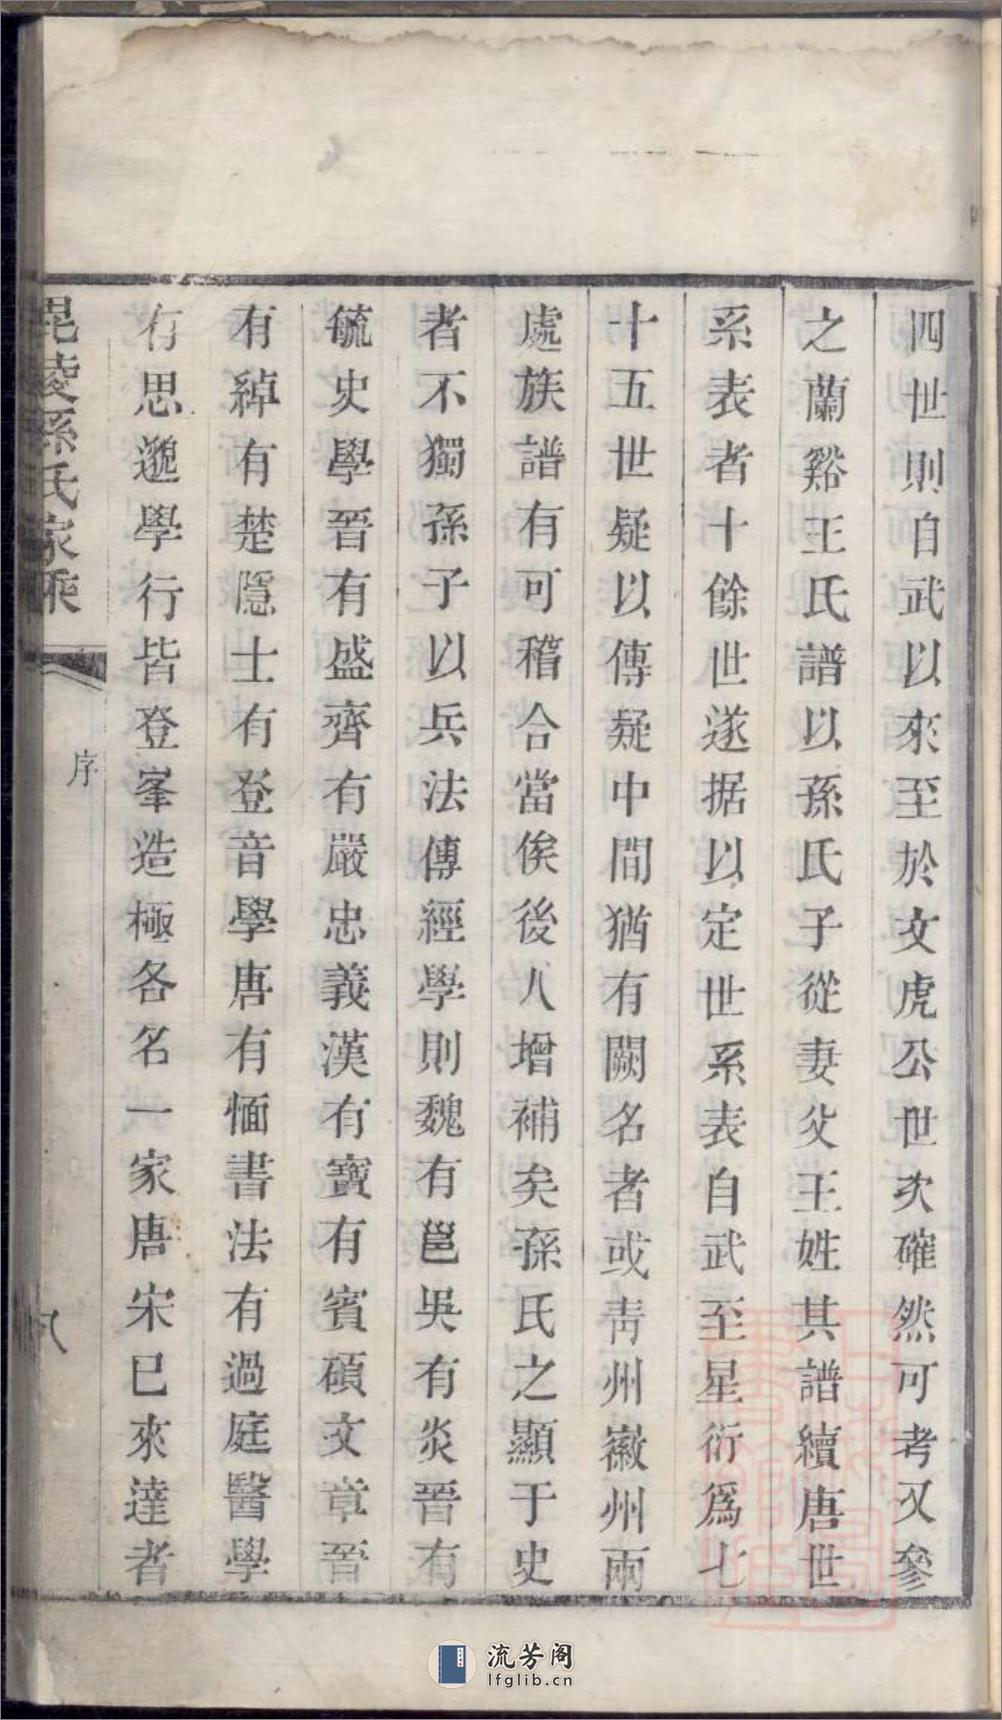 四世則自武以來至於文虎公世次確然可考又參
之蘭谿王氏譜以孫氏子從妻父王姓其譜續唐世
系表者十餘世遂据以定世系表自武至星衍爲七
十五世疑以傳疑中間猶有闕名者或靑州徽州兩
處族譜有可稽合當俟後人增補矣孫氏之顯于史
者不獨孫子以兵法傳經學則魏有邕吳有炎晉有
毓史學晉有盛齊有嚴忠義漢有寶有賓碩文章晉
有綽有楚隱士有登音學唐有愐書法有過庭醫學
有思邈學行皆登峯造極各名一家唐宋已來達者
毘陵孫氏家乘
序
八
流芳阁
lfglib.cn